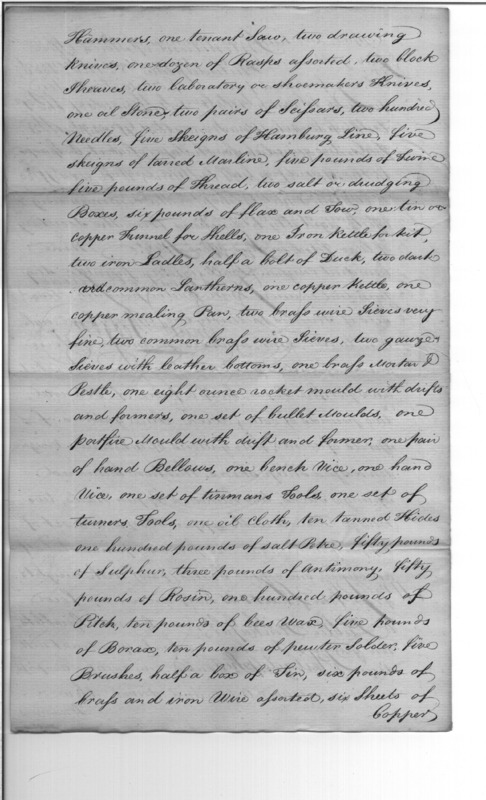 Hammers, one tenant Saw, two drawing
knives, one dozen of Rasps assorted, two block
Sheaves, two Laboratory or shoemakers Knives,
one oil Stone, two pairs of Scissars, two hundred
Needles, five Skeigns of Hamburg Line, five
skeigns of tarred Marline, five pounds of Twine
five pounds of Thread, two salt or drudging
Boxes, six pounds of flax and Tow, one tin or
Copper Funnel for Shells, one Iron Kettle for kit,
two iron Ladles, half a bolt of Duck, two dark
and common Lanthorns, one copper Kettle, one
copper mealing Pan, two brass wire Sieves very
fine, two common brass wire Sieves, two gauze
Sieves with leather bottoms, one brass Mortar &
Pestle, one eight ounce rocket mould with drifts
and formers, one set of bullet Moulds, one
portfire Mould with drift and former, one pair
of hand Bellows, one bench Vice, one hand
Vice, one set of tinmans Tools, one set of
turners Tools, one oil Cloth, ten tanned Hides
one hundred pounds of salt Petre, fifty pounds
of Sulphur, three pounds of Antimony, fifty
pounds of Rosin, one hundred pounds of
Pitch, ten pounds of bees Wax, five pounds
of Borax, ten pounds of pewter Solder, five
Brushes, half a box of Tin, six pounds of
brass and iron Wire assorted, six Sheets of
Copper